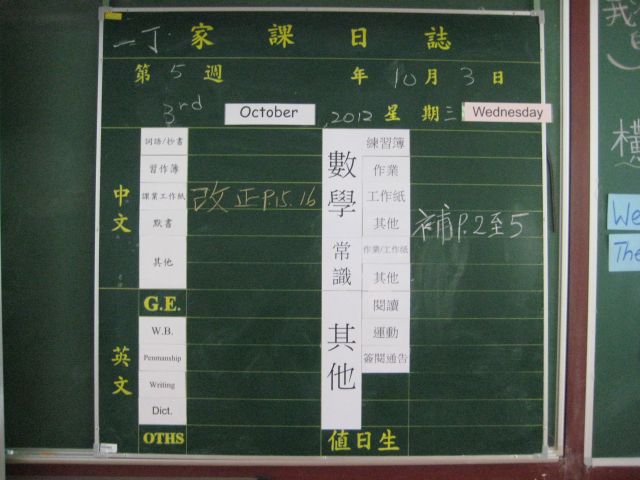 一丁 家課日誌
第 5 週 年 10 月 3 日
3rd October ,2012 星期三 Wednesday
中文
詞語/抄書
習作簿
課業工作紙 改正P.15.16
默書
其他
英文
G.E.
W.B.
Penmanship
Writing
Dict.
OTHS
數學
練習簿
作業
工作紙
其他 補P.2至5
常識
作業/工作紙
其他
其他
閱讀
運動
簽閱通告
值日生
我
橫
We
The